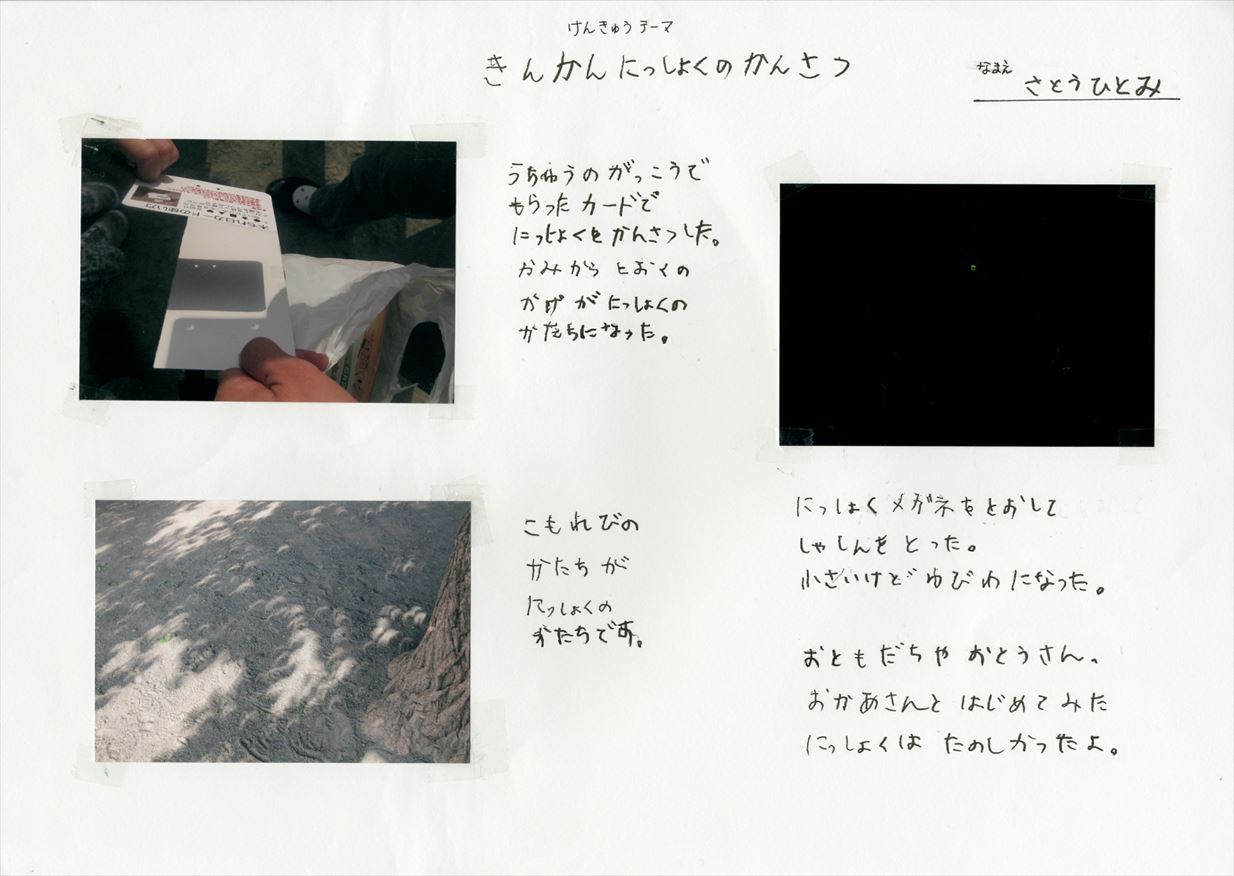 けんきゅうテーマ
きんかんにっしょくのかんさつ
なまえ さとうひとみ
うちゅうの がっこうで
もらった カードで
にっしょくを かんさつした。
かみから とおくの
かげ が にっしょくの
かたちになった。
木もれ日カードの使い方
こもれびの
かたち が
にっしょくの
かたちです。
にっしょく メガネをとおして
しゃしんを とった。
小さいけど ゆびわ になった。
おともだちや おとうさん、
おかあさんと はじめて みた
にっしょくは たのしかったよ。